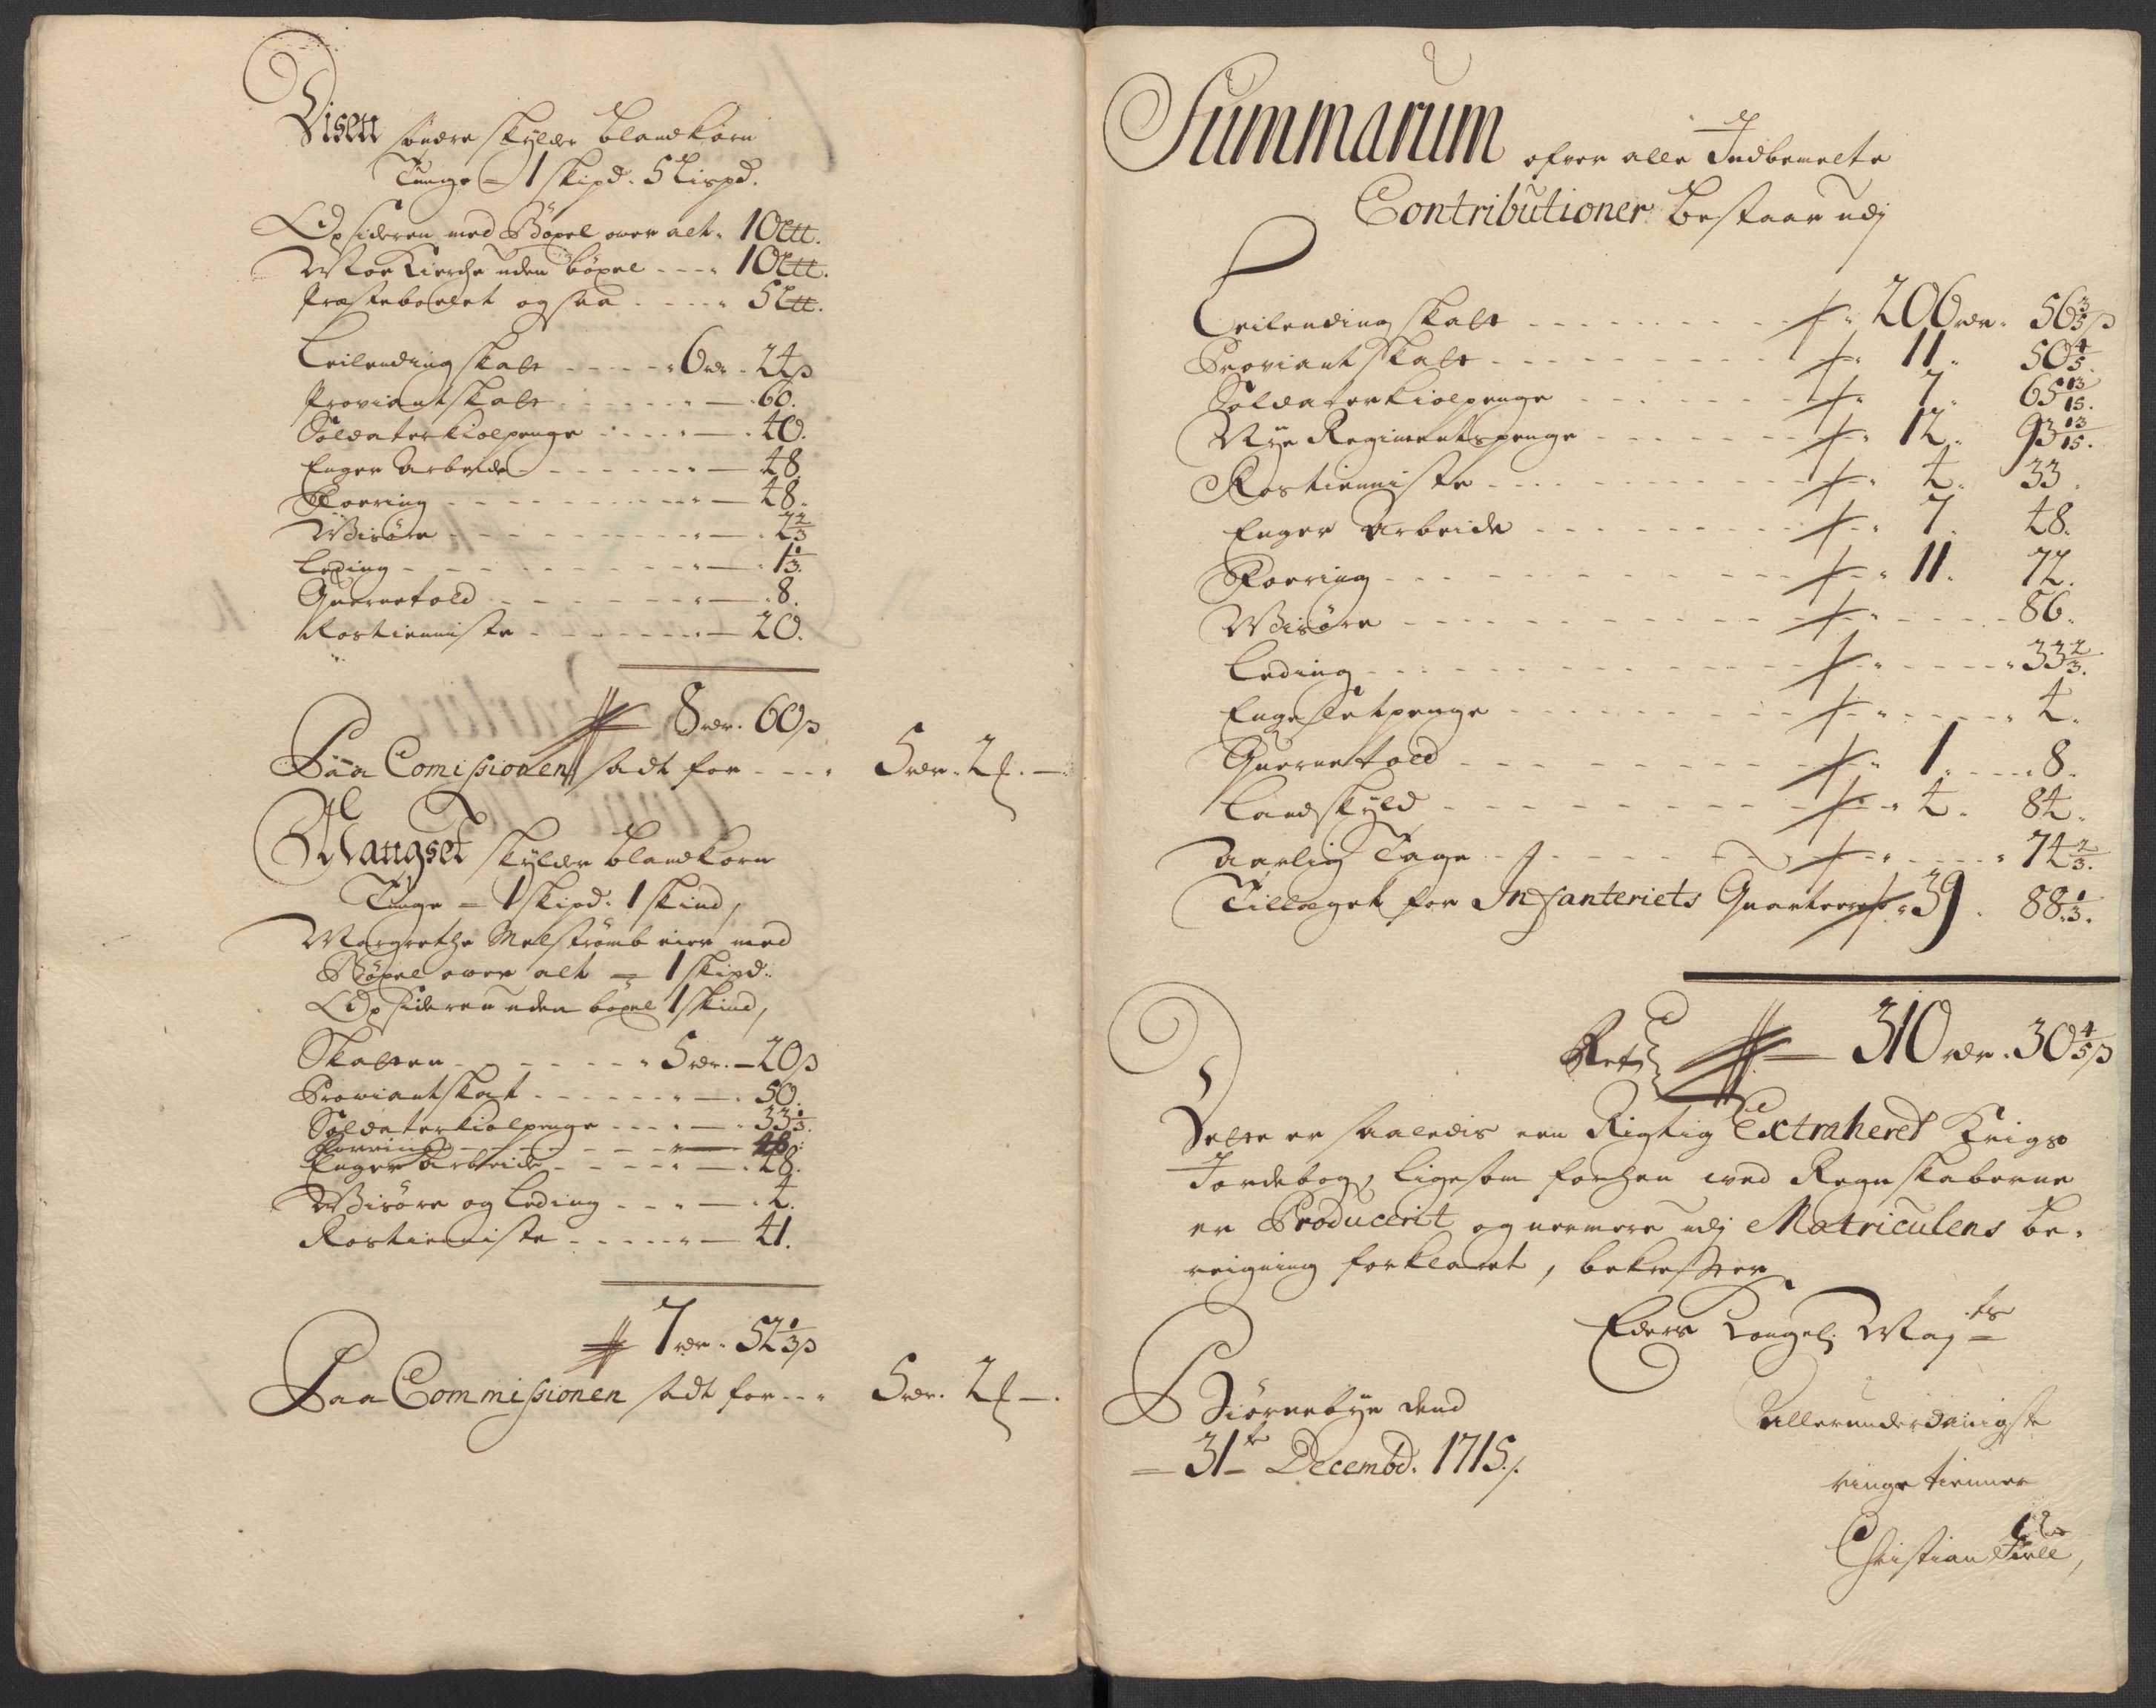 Disen søndre skylder blandkorn
Tunge = 1 skipd. 5 Lispd.
Opsideren med Böxel over alt. 10 Ltt.
Moe Kierche uden böxel - - - 10 Ltt.
Præsteboelet ogsaa - - - 5 Ltt.
Leilending skatt - - - 6 rdr. 24 s
Proviantskatt - - - 60.
Soldaterkiolpenge - - - 40.
Enger Arbeide - - - 48.
Foering - - - 48.
Wisöre - - - 2 2/3
Leding - - - 1 1/3.
Quernetold - - - 8.
Rostienniste - - - 20.
8 rdr. 60 s
Paa Comissionen sadt for - - - 5 rdr. 2 f. —
Mangset skylder blandkorn
Tunge = 1 Skipd. 1 skind,
Margrethe Melströmb eier med
Böxel over alt = 1 skipd.
Opsideren uden böxel 1 skind,
Skatten - - - 5 rdr. — 20 s
Proviantskat - - - 50.
Soldaterkiolpenge - - - 33 1/3.
Foering - - - 48.
Enger Arbeide - - - 48.
Wisöre og Leding - - - 4.
Rostienniste - - - 41.
7 rdr. 52 1/3 s
Paa Commissionen sadt for - - - 5 rdr. 2 f —.
Summarum ofver alle Indbemelte
Contributioner bestaar udj
Leilending skatt - - - 206 rdr. 56 3/5 s
Proviant skatt - - - 11. 50 4/5.
Soldaterkiolpenge - - - 7. 65 13/15.
Nye Regimentspenge - - - 12. 93 13/15.
Rostienniste - - - 4. 33.
Enger Arbeide - - - 7. 48.
Foering - - - 11. 72.
Wisöre - - - 86.
Leding - - - 33 2/3.
Engesletpenge - - - 4.
Quernetold - - - 1. 8.
Landskyld - - - 4. 84.
Aarlig Tage - - - 74 2/3.
Tillaget for Infanteriets Quarteer 39. 88 1/3.
310 rdr. 30 4/5 s
Dette er saaledis een Rigtig Extraheret Krigs
Jordebog, ligesom forhen wed Regnskaberne
er Producerit og nermere udj Matriculens be-
reigning forklaret, bekrefter
Eders Kongel. May.ts
Biörnebye dend
Allerunderdanigste
31te Decembd. 1715./.
ringe tienner
Christian